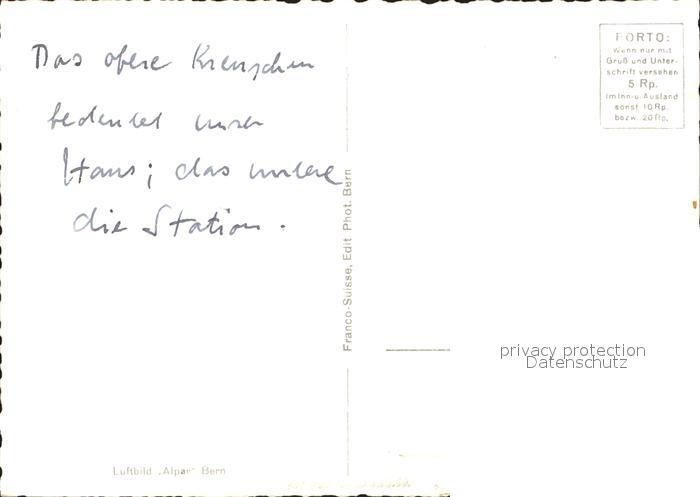 Das obere Kreuzchen
bedeutet unser
Haus; das untere
die Station.
Franco-Suisse, Edit. Phot. Bern
Luftbild „Alpar" Bern
PORTO:
Wenn nur mit
Gruß und Unter-
schrift versehen
5 Rp.
im Inn- u. Ausland
sonst 10 Rp.
bezw. 20 Rp.
privacy protection
Datenschutz